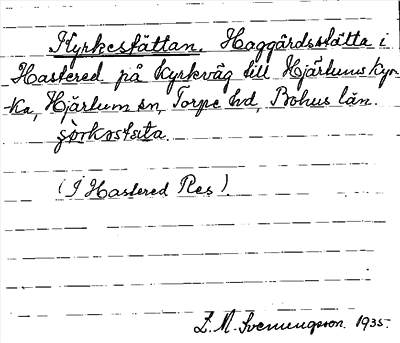 Kyrkestättan. Haggårdsstätta i
Hastered på kyrkväg till Hjärtums kyr-
ka, Hjärtum sn, Torpe hd, Bohus län.
(I Hastered Res).
Z. M. Svenungsson. 1935.